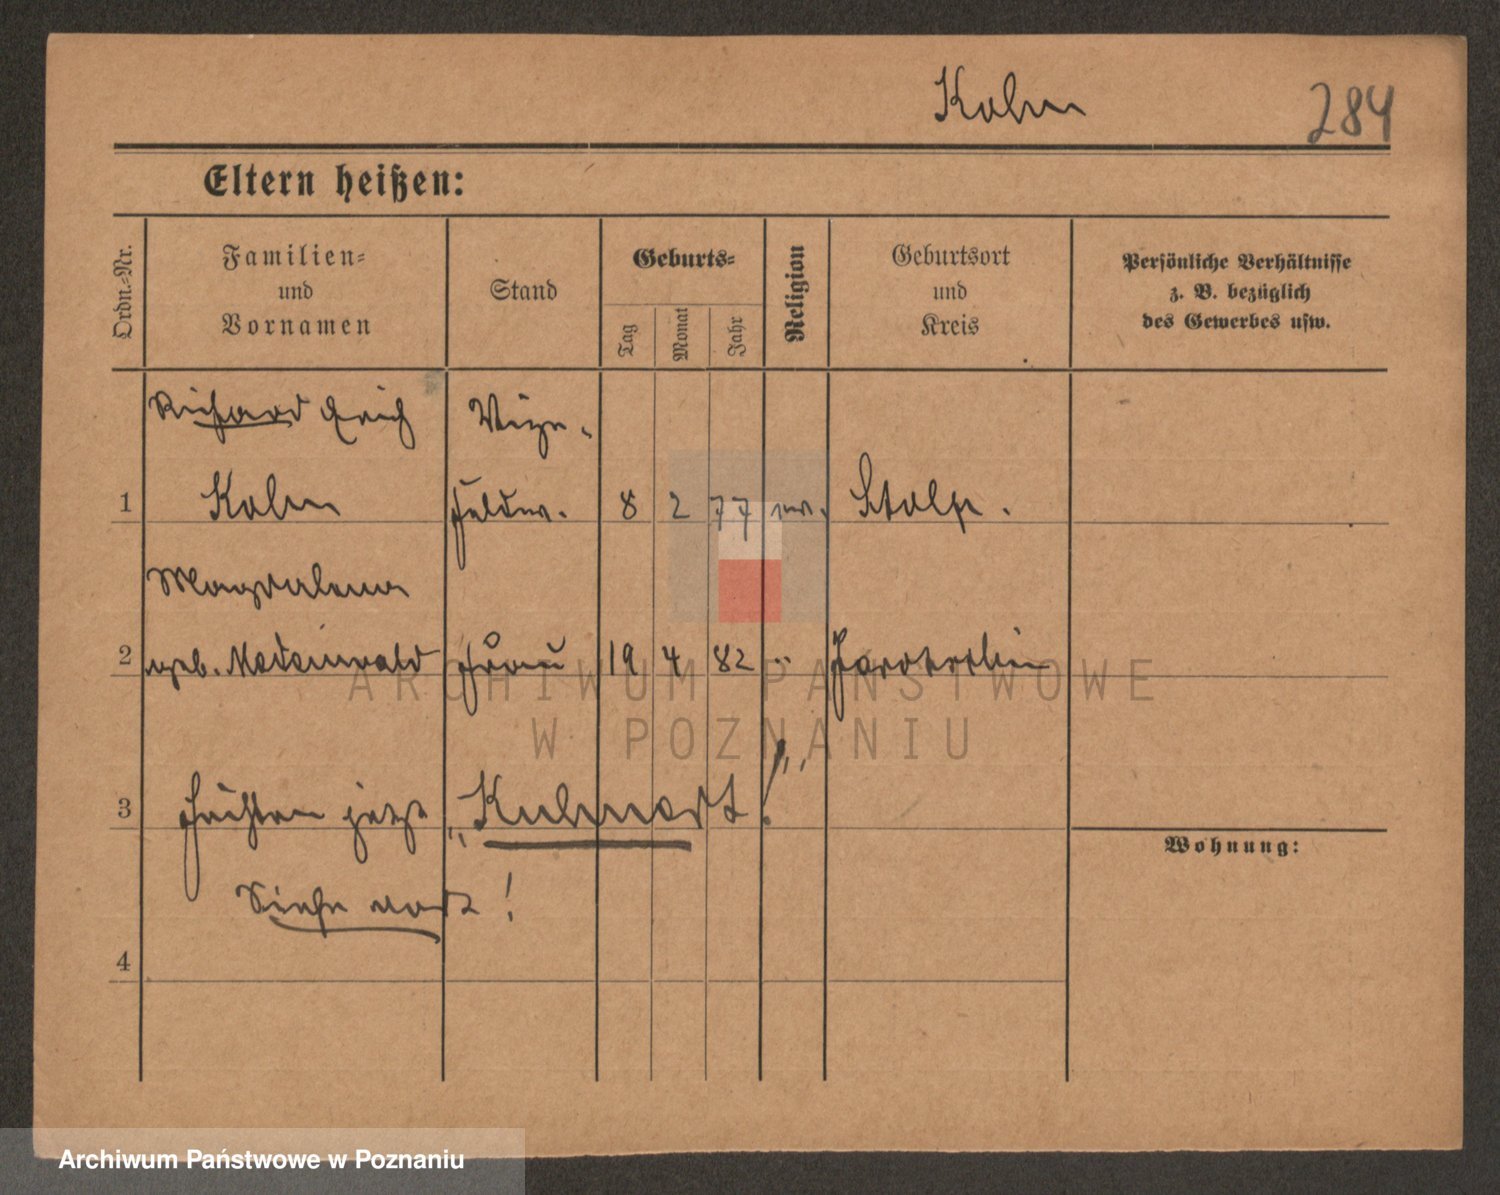 Kolm
284
Eltern heißen:
Ordn.-Nr.
Familien-
und
Vornamen
Stand
Geburts-
Tag
Monat
Jahr
Religion
Geburtsort
und
Kreis
Persönliche Verhältnisse
z. B. bezüglich
des Gewerbes usw.
Richard Erich
Vize-
1 Kolm Feldw. 8 2 77 ev. Stolp.
Magdalena
2 geb. Modenwald Frau 19 4 82 "
3 Führten jetzt „Kulm“!
Wohnung:
Siehe dort!
4
ARCHIWUM PAŃSTWOWE
W POZNANIU
Archiwum Państwowe w Poznaniu